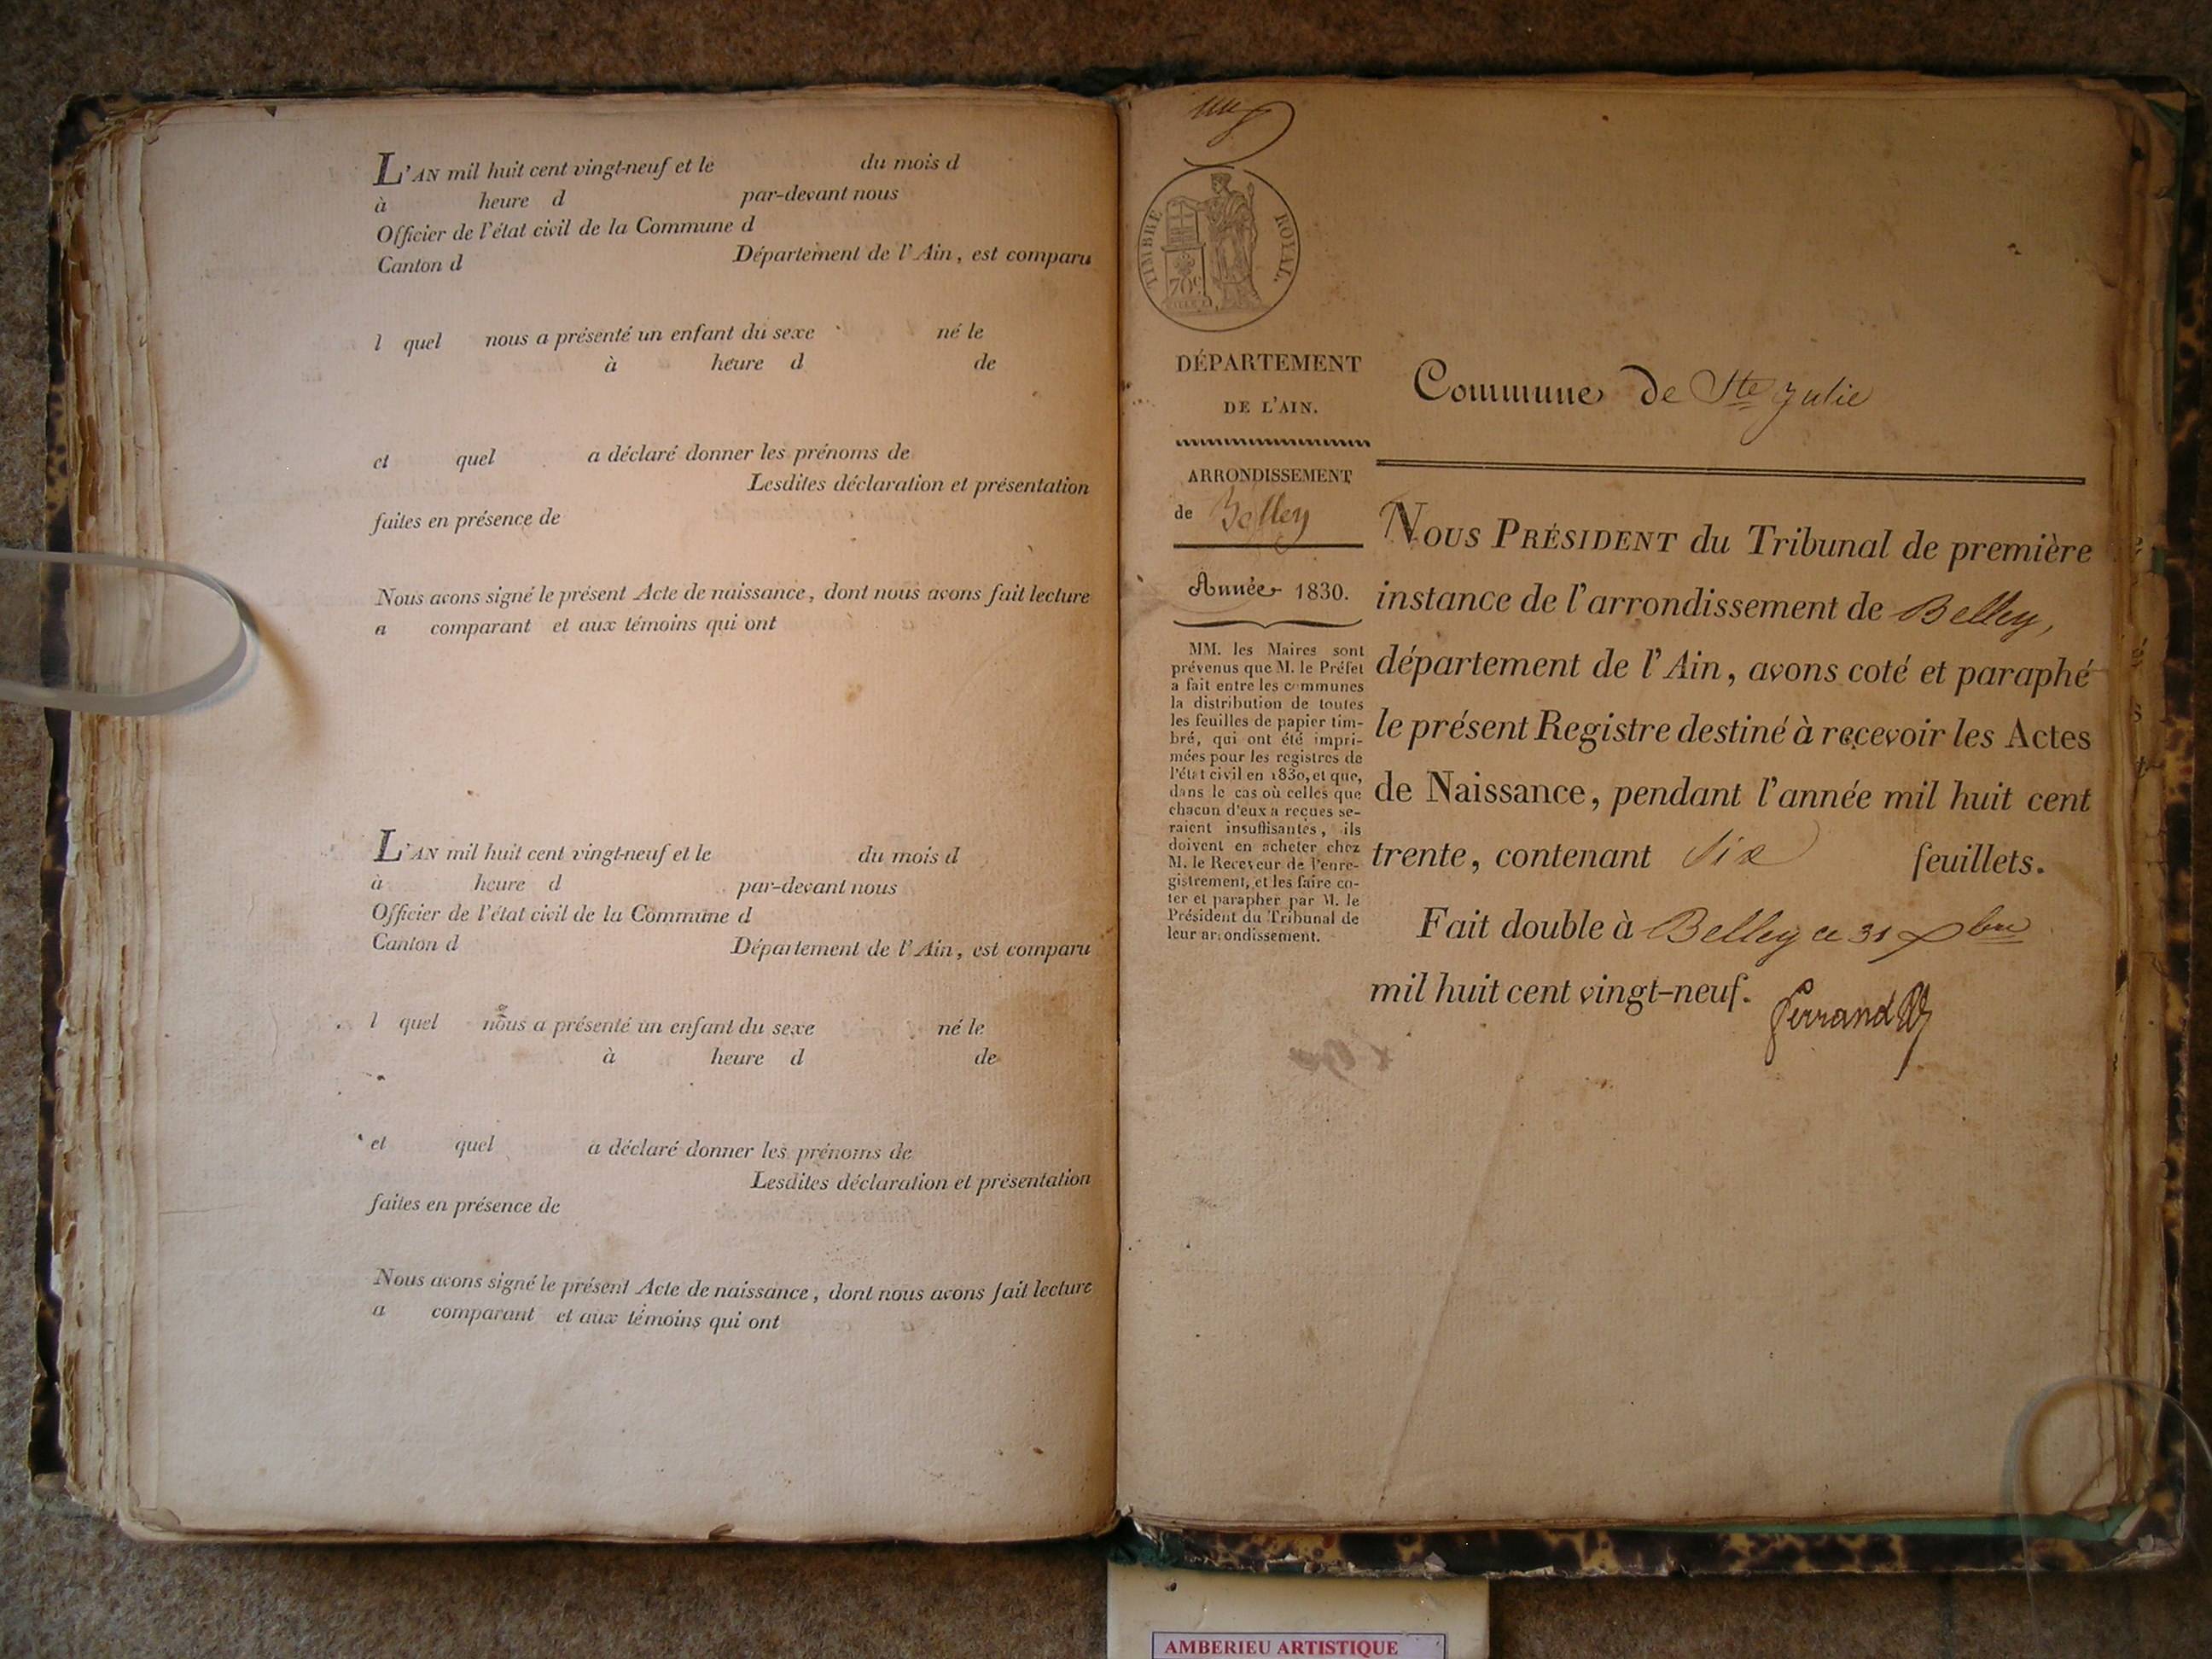 L'AN mil huit cent vingt-neuf et le du mois d
à heure d par-devant nous
Officier de l'état civil de la Commune d
Canton d Département de l'Ain, est comparu
l quel nous a présenté un enfant du sexe né le
à heure d de
et quel a déclaré donner les prénoms de
Lesdites déclaration et présentation
faites en présence de
Nous avons signé le présent Acte de naissance, dont nous avons fait lecture
a comparant et aux témoins qui ont
L'AN mil huit cent vingt-neuf et le du mois d
à heure d par-devant nous
Officier de l'état civil de la Commune d
Canton d Département de l'Ain, est comparu
l quel nous a présenté un enfant du sexe né le
à heure d de
et quel a déclaré donner les prénoms de
Lesdites déclaration et présentation
faites en présence de
Nous avons signé le présent Acte de naissance, dont nous avons fait lecture
a comparant et aux témoins qui ont
TIMBRE ROYAL.
70c
DÉPARTEMENT
DE L'AIN.
ARRONDISSEMENT
de Belley
Année 1830.
MM. les Maires sont
prévenus que M. le Préfet
a fait entre les communes
la distribution de toutes
les feuilles de papier tim-
bré, qui ont été impri-
mées pour les registres de
l'état civil en 1830, et que,
dans le cas où celles que
chacun d'eux a reçues se-
raient insuffisantes, ils
doivent en acheter chez
M. le Receveur de l'enre-
gistrement, et les faire co-
ter et parapher par M. le
Président du Tribunal de
leur arrondissement.
Commune de Ste Julie
NOUS PRÉSIDENT du Tribunal de première
instance de l'arrondissement de Belley,
département de l'Ain, avons coté et paraphé
le présent Registre destiné à recevoir les Actes
de Naissance, pendant l'année mil huit cent
trente, contenant six feuillets.
Fait double à Belley ce 31 Xbre
mil huit cent vingt-neuf.
AMBERIEU ARTISTIQUE